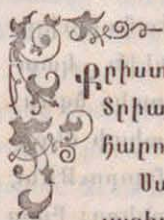 Քրիստ
Տրիա
Յարո
Սա